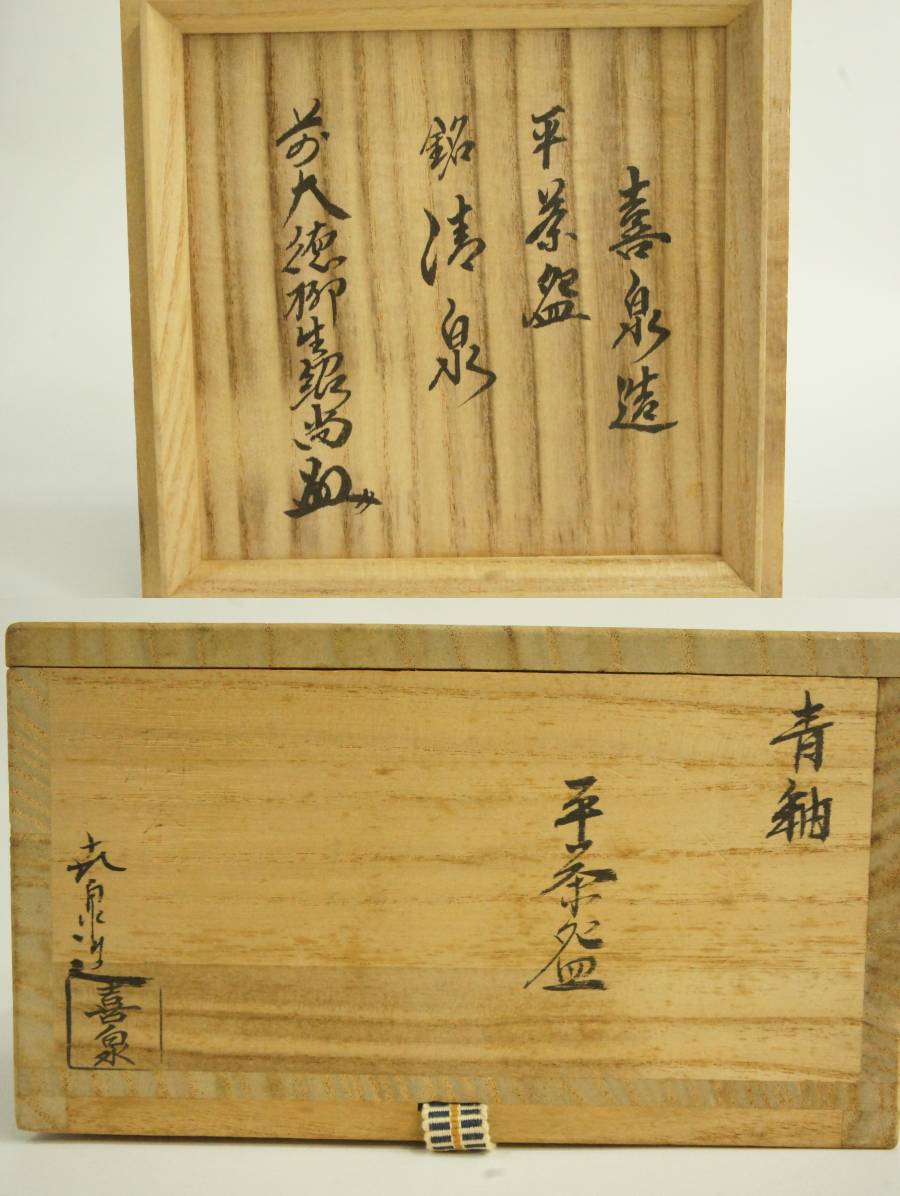 喜泉造
平茶盌
銘 清泉
前大徳柳生紹尚
青釉
平茶盌
喜泉造
喜泉